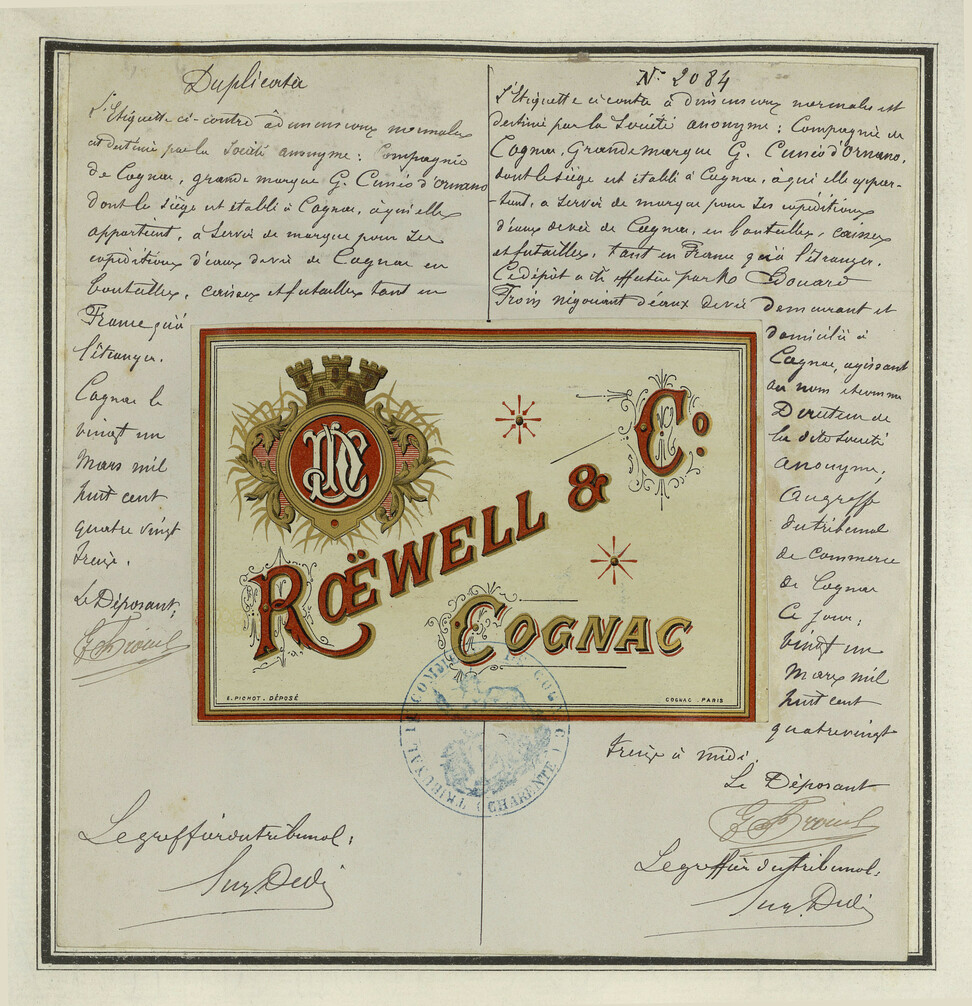 Duplicata
L'Etiquette ci-contre à dimensions normales
est destinée par la Société anonyme : Compagnie
de Cognac, grande marque G. Cunéo d'Ornano
dont le siège est établi à Cognac, à qui elle
appartient, à servir de marque pour ses
expéditions d'eaux de vie de Cognac en
bouteilles, caisses et futailles tant en
France qu'à
l'étranger.
Cognac le
vingt un
Mars mil
huit cent
quatre vingt
treize.
Le Déposant,
Le greffier du tribunal :
N° 2084
L'Etiquette ci contre à dimensions normales est
destinée par la Société anonyme : Compagnie de
Cognac, Grande marque G. Cunéo d'Ornano,
dont le siège est établi à Cognac, à qui elle appar-
tient, à servir de marque pour ses expéditions
d'eaux de vie de Cognac, en bouteilles, caisses
et futailles, tant en France qu'à l'étranger.
Ce dépôt a été effectué par M Edouard
négociant d'eaux de vie demeurant et
domicilié à
Cognac, agissant
au nom et comme
Directeur de
la dite Société
anonyme,
au greffe
du tribunal
de Commerce
de Cognac
Ce jour,
vingt un
Mars mil
huit cent
quatre vingt
treize à midi.
Le Déposant
Le greffier du tribunal :
RŒWELL & Co
COGNAC
E. PICHOT. DÉPOSÉ
COGNAC - PARIS
TRIBUNAL DE COMMERCE DE COGNAC (CHARENTE)